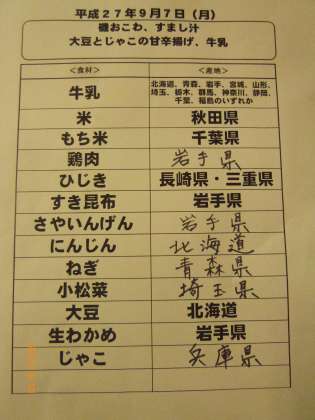 平成27年9月7日（月）
磯おこわ、すまし汁
大豆とじゃこの甘辛揚げ、牛乳
＜食材＞ ＜産地＞
牛乳 北海道、青森、岩手、宮城、山形、
埼玉、栃木、群馬、神奈川、静岡、
千葉、福島のいずれか
米 秋田県
もち米 千葉県
鶏肉 岩手県
ひじき 長崎県・三重県
すき昆布 岩手県
さやいんげん 岩手県
にんじん 北海道
ねぎ 青森県
小松菜 埼玉県
大豆 北海道
生わかめ 岩手県
じゃこ 兵庫県